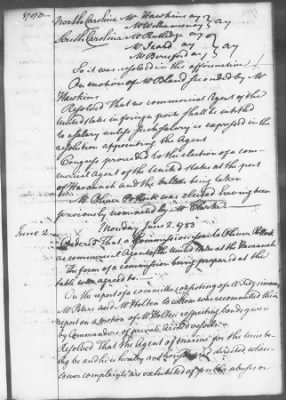 North Carolina Mr Hawkins ay
Mr Williamson ay } ay
South Carolina Mr Rutledge ay
Mr Izard ay } ay
Mr Beresford ay
So it was resolved in the affirmative
On motion of Mr Bland seconded by Mr
Hawkins
Resolved That no commercial Agent of the
United States in foreign ports shall be entitled
to a salary unless such salary is expressed in the
resolution appointing the Agent
Congress proceeded to the election of a com
mercial Agent of the United States at the port
of Havannah and the ballots being taken
Mr Oliver Pollock was elected having been
previously nominated by
Monday June 2. 1783
June 2
Ordered That a commission issue to Oliver Pollock
as commercial Agent of the United States at the Havannah
The form of a commission being prepared at the
table was agreed to
On the report of a committee consisting of Mr Fitzsimmons
Mr Peters and Mr Holten to whom was recommitted their
report on a motion of Mr Holten respecting bonds given
by Commanders of private armed vessels
Resolved That the Agent of marine for the time be-
ing be and he is hereby authorised and directed when-
soever complaints are exhibited of